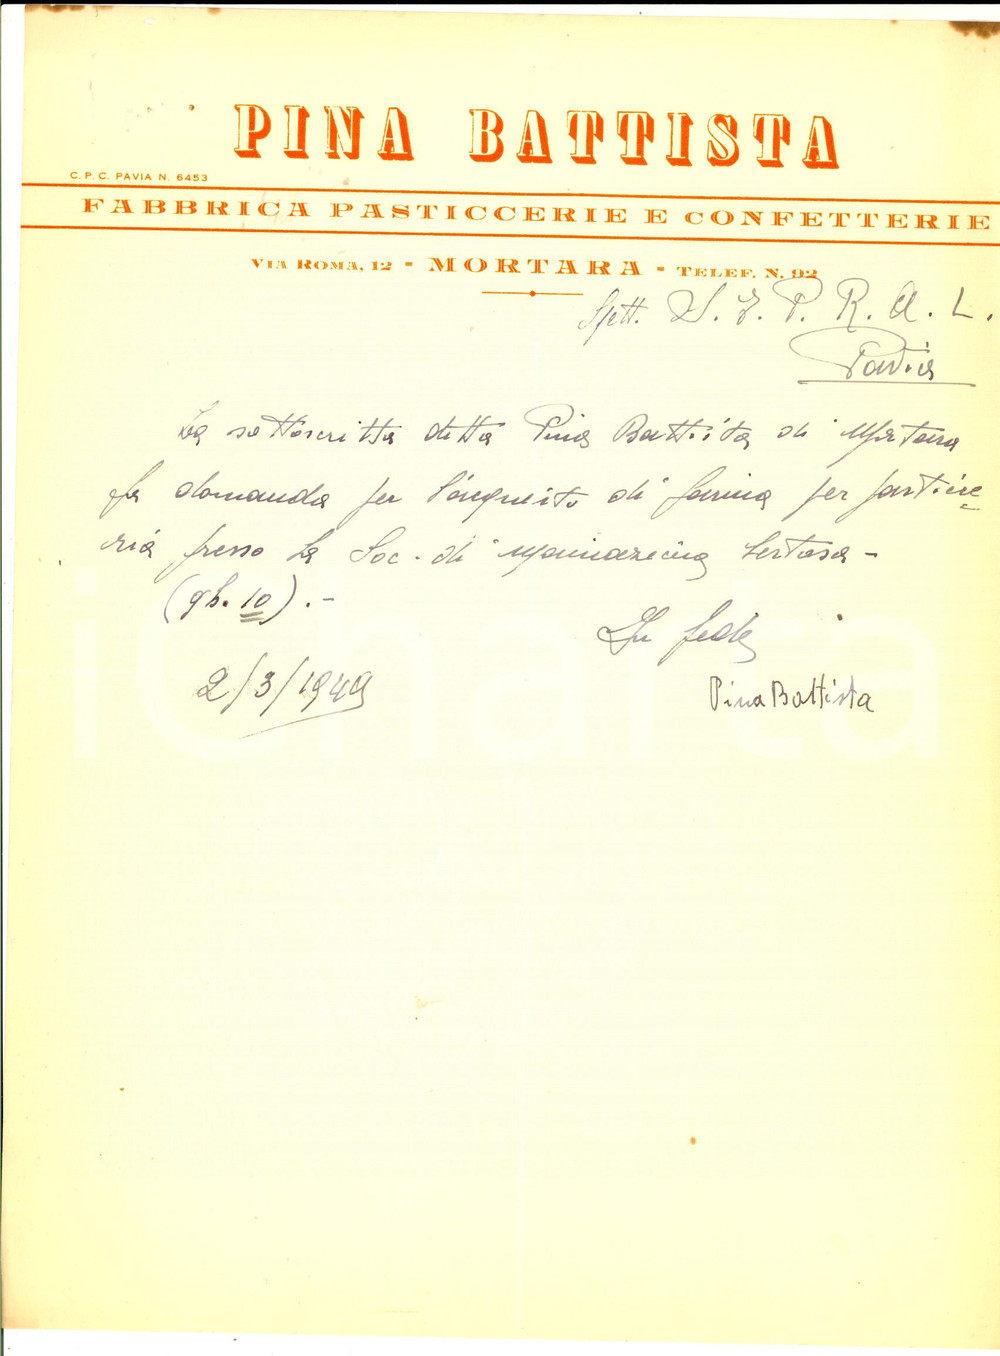 PINA BATTISTA
C. P. C. PAVIA N. 6453
FABBRICA PASTICCERIE E CONFETTERIE
VIA ROMA, 12 - MORTARA - TELEF. N. 92
Spett. S. E. P. R. A. L.
Pavia
La sottoscritta ditta Pina Battista di Mortara
fa domanda per l'acquisto di farina per pasticce
ria presso la Soc. di Macinazione Certosa -
(qli. 10). -
In fede
2/3/1949
Pina Battista
iCharta